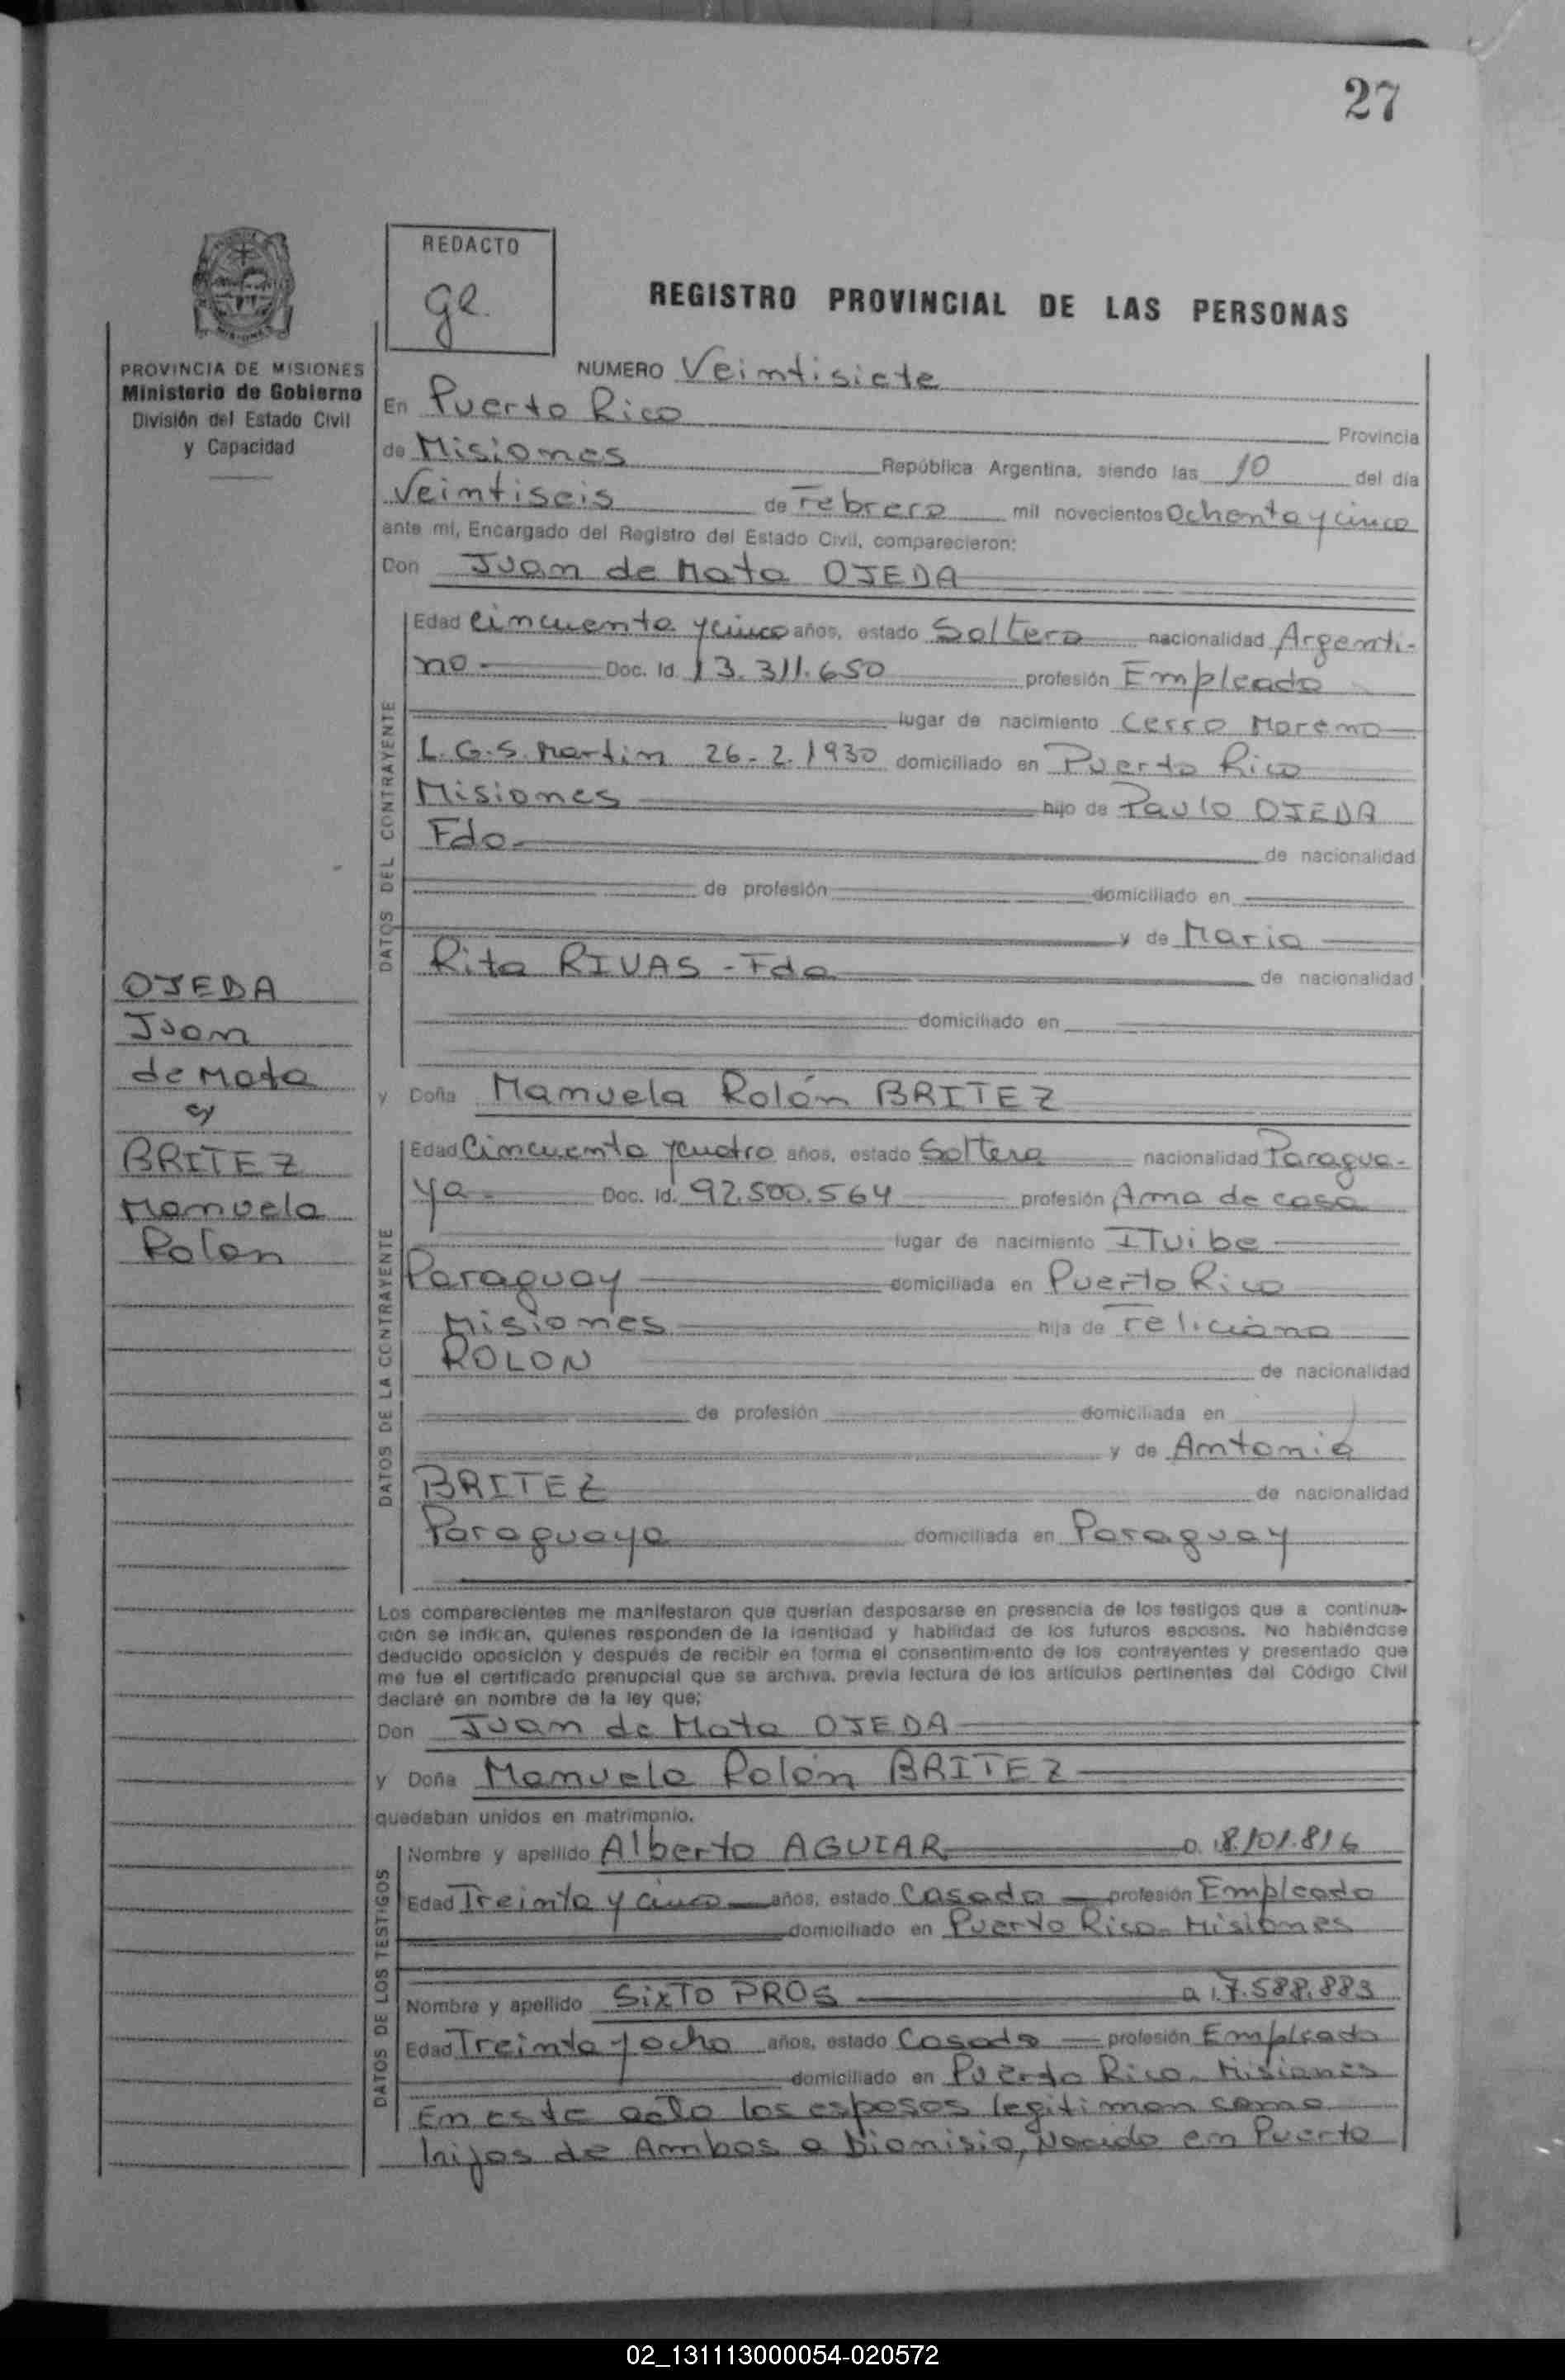 27
REDACTO
ge.
REGISTRO PROVINCIAL DE LAS PERSONAS
PROVINCIA DE MISIONES
Ministerio de Gobierno
División del Estado Civil
y Capacidad
NUMERO Veintisiete
En Puerto Rico Provincia
de Misiones República Argentina, siendo las 10 del día
Veintiseis de Febrero mil novecientos Ochenta y cinco
ante mí, Encargado del Registro del Estado Civil, comparecieron:
Don Juan de Mata OJEDA
DATOS DEL CONTRAYENTE
Edad Cincuenta y cinco años, estado Soltero nacionalidad Argenti-
no Doc. Id. 13.311.650 profesión Empleado
lugar de nacimiento Cerro Moreno
L.G.S. Martin 26-2.1930 domiciliado en Puerto Rico
Misiones hijo de Paulo OJEDA
Fdo. de nacionalidad
de profesión domiciliado en
y de Maria
Rita RIVAS - Fda de nacionalidad
domiciliado en
OJEDA
Juan
de Mata
c/
BRITEZ
Manuela
Rolon
y Doña Manuela Rolón BRITEZ
DATOS DE LA CONTRAYENTE
Edad Cincuenta y cuatro años, estado Soltera nacionalidad Paragua-
ya Doc. Id. 92.500.564 profesión Ama de casa
lugar de nacimiento ITuibe
Paraguay domiciliada en Puerto Rico
Misiones hija de Feliciano
ROLON de nacionalidad
de profesión domiciliada en
y de Antonia
BRITEZ de nacionalidad
Paraguaya domiciliada en Paraguay
Los comparecientes me manifestaron que querían desposarse en presencia de los testigos que a continua-
ción se indican, quienes responden de la identidad y habilidad de los futuros esposos. No habiéndose
deducido oposición y después de recibir en forma el consentimiento de los contrayentes y presentado que
me fue el certificado prenupcial que se archiva, previa lectura de los artículos pertinentes del Código Civil
declaré en nombre de la ley que;
Don Juan de Mata OJEDA
y Doña Manuela Rolón BRITEZ
quedaban unidos en matrimonio.
DATOS DE LOS TESTIGOS
Nombre y apellido Alberto AGUIAR 8.101.816
Edad Treinta y cinco años, estado Casado profesión Empleado
domiciliado en Puerto Rico - Misiones
Nombre y apellido SixTO PROS 7.588.883
Edad Treinta y ocho años, estado Casado profesión Empleado
domiciliado en Puerto Rico - Misiones
En este acto los esposos legitiman como
hijos de Ambos a Dionisio, Nacido en Puerto
02_131113000054-020572